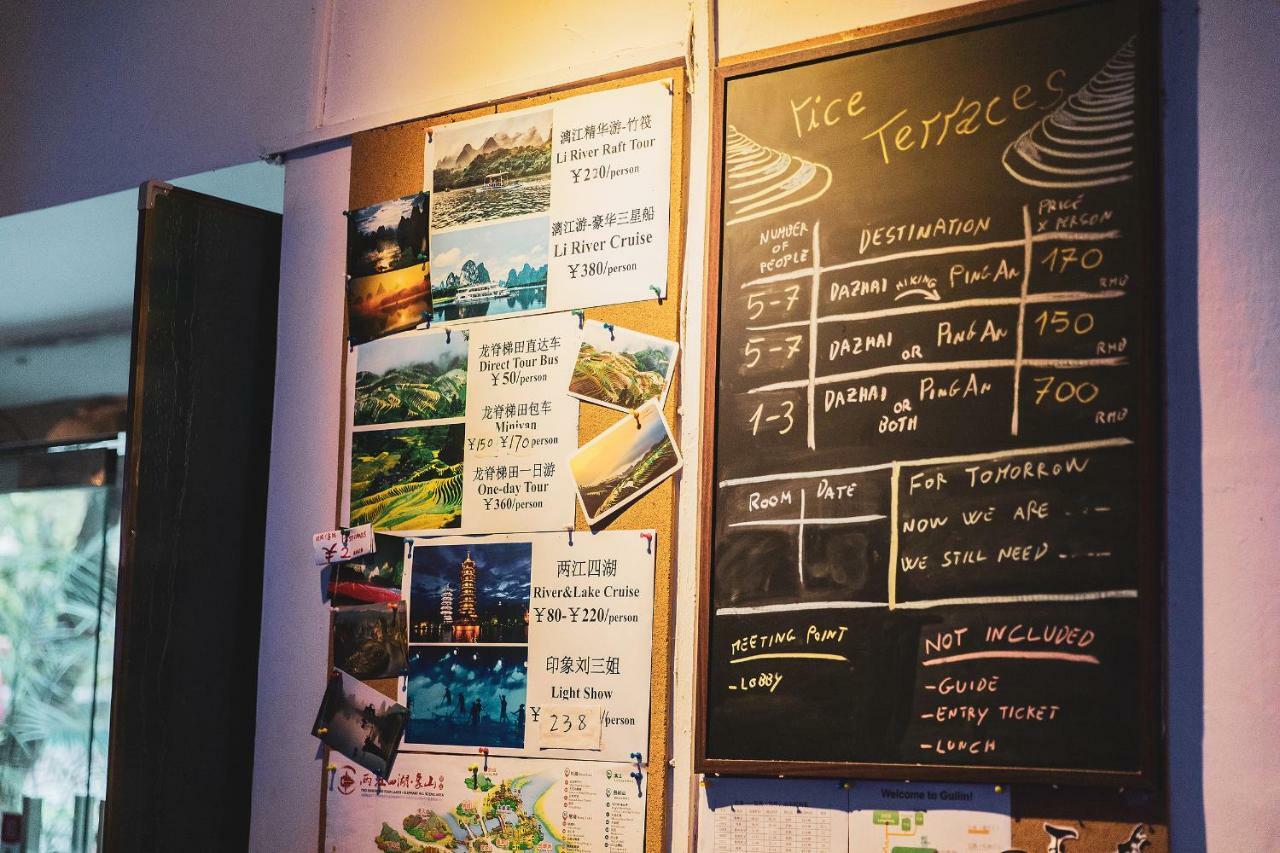 漓江精华游-竹筏
Li River Raft Tour
￥220/person
漓江游-豪华三星船
Li River Cruise
￥380/person
龙脊梯田直达车
Direct Tour Bus
￥50/person
龙脊梯田包车
Minivan
¥150 ¥170/person
龙脊梯田一日游
One-day Tour
￥360/person
两江四湖
River&Lake Cruise
￥80-￥220/person
印象刘三姐
Light Show
￥238/person
两江四湖·象山
rice
Terraces
NUMBER OF PEOPLE DESTINATION PRICE X PERSON
5-7 DAZHAI HIKING PINGAN 170 RMB
5-7 DAZHAI OR PINGAN 150 RMB
1-3 DAZHAI OR PINGAN BOTH 700 RMB
ROOM DATE
FOR TOMORROW
NOW WE ARE ---
WE STILL NEED ----
MEETING POINT
-LOBBY
NOT INCLUDED
-GUIDE
-ENTRY TICKET
-LUNCH
Welcome to Guilin!